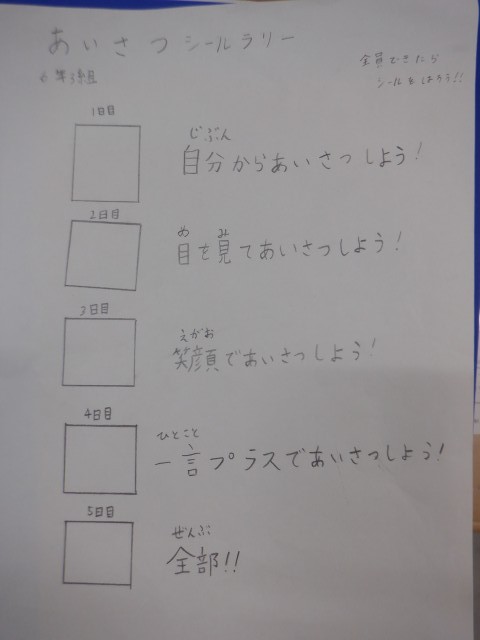 あいさつシールラリー
全員できたら
シールをはろう!!
1日目
じぶん
自分からあいさつしよう!
2日目
め み
目を見てあいさつしよう!
3日目
えがお
笑顔であいさつしよう!
4日目
ひとこと
一言プラスであいさつしよう!
5日目
ぜんぶ
全部!!